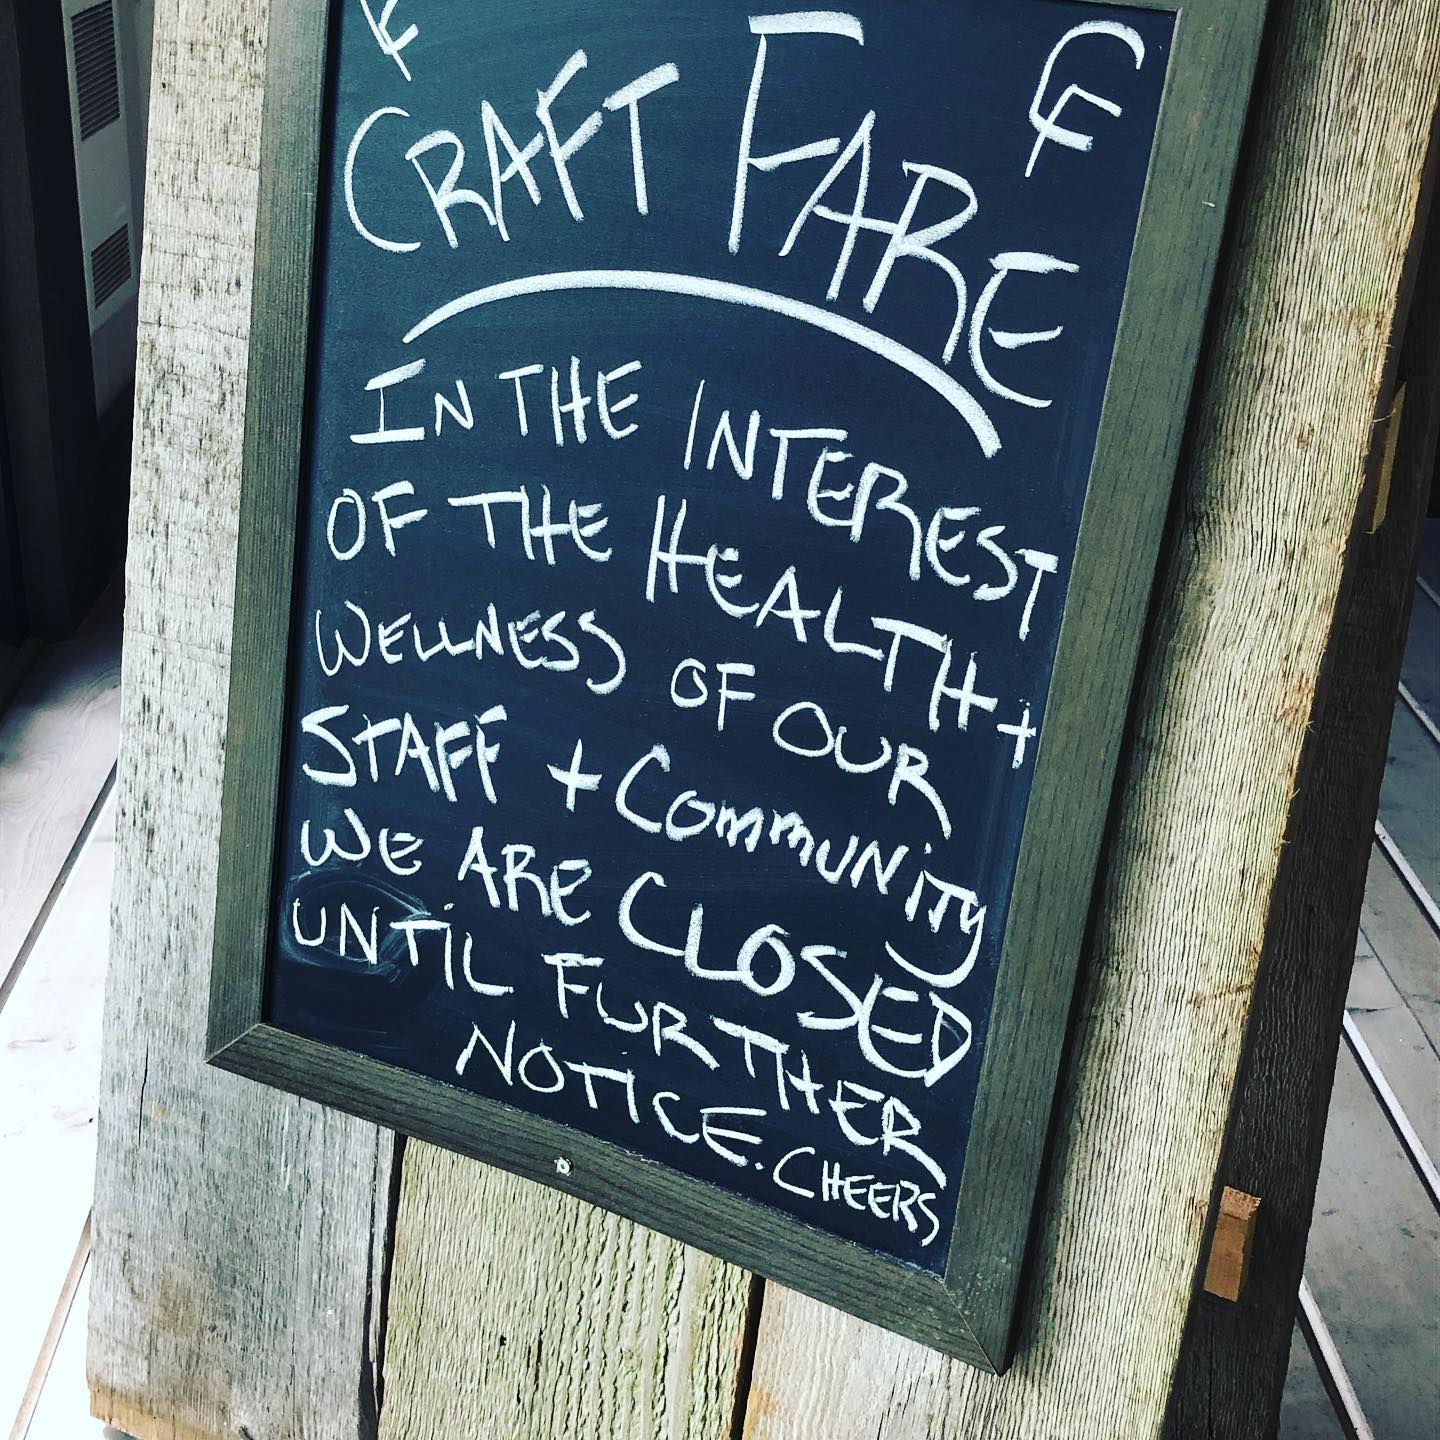 CF
CF
CRAFT FARE
IN THE INTEREST
OF THE HEALTH +
WELLNESS OF OUR
STAFF + COMMUNITY
WE ARE CLOSED
UNTIL FURTHER
NOTICE. CHEERS